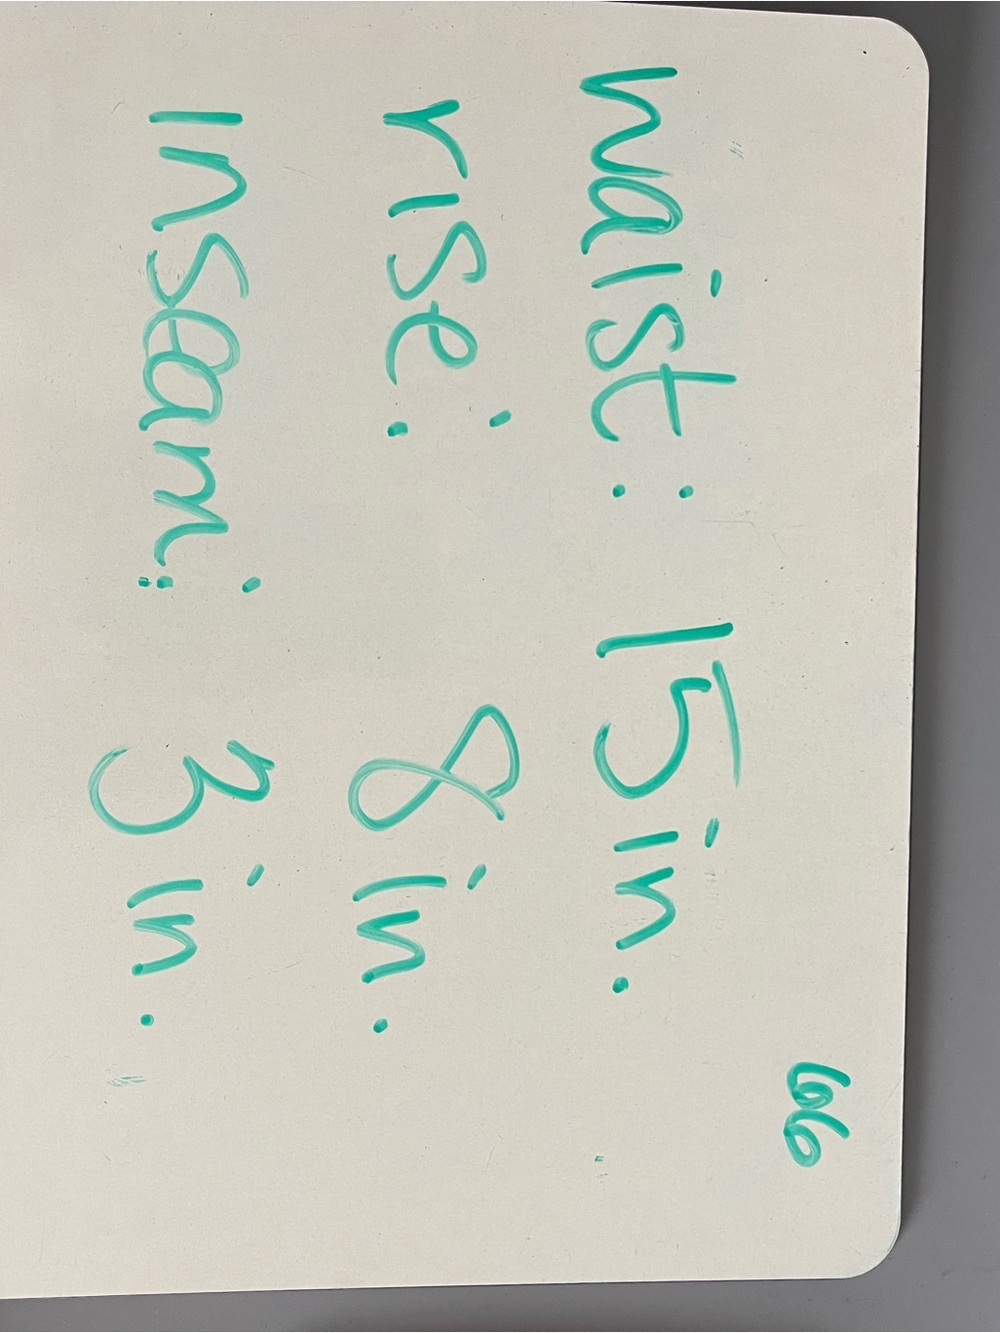 66
waist: 15in.
rise: 8in.
inseam: 3in.